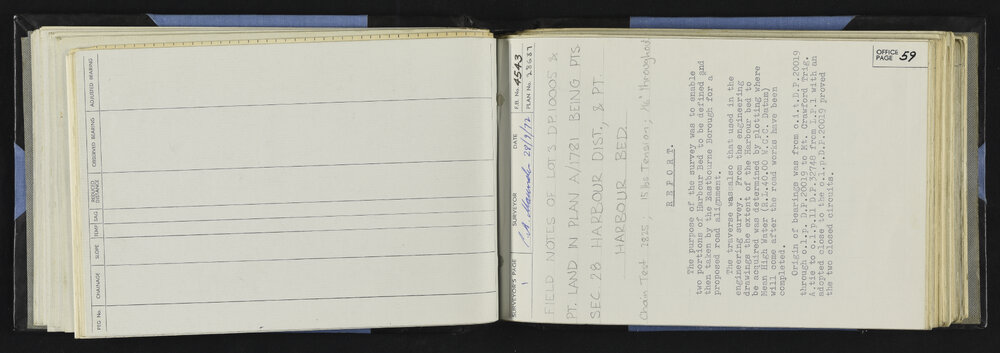 PEG No.
CHAINAGE
SLOPE
TEMP
SAG
REDUCED DISTANCE
OBSERVED BEARING
ADJUSTED BEARING
OFFICE PAGE 59
SURVEYOR'S PAGE 1
SURVEYOR
DATE 28/9/72
F.B. No. 4543
PLAN No. 28687
FIELD NOTES OF LOT 3 D.P. 10005 &
PT. LAND IN PLAN A/1781 BEING PTS
SEC. 28 HARBOUR DIST., & PT.
HARBOUR BED.
Chain Test ·825; 15 lbs Tension; throughout
R E P O R T.
The purpose of the survey was to enable
two portions of Harbour Bed to be defined and
then taken by the Eastbourne Borough for a
proposed road alignment.
The traverse was also that used in the
engineering survey. From the engineering
drawings the extent of the Harbour bed to
be acquired was determined by plotting where
Mean High Water (R.L.40.00 W.C.C. Datum)
will come after the road works have been
completed.
Origin of bearings was from o.i.t.D.P.20019
through o.i.p. D.P.20019 to Mt. Crawford Trig.
A tie to o.i.p.11 D.P.32748 from L.P.1 with an
adopted close to the o.i.p.D.P.20019 proved
the two closed circuits.